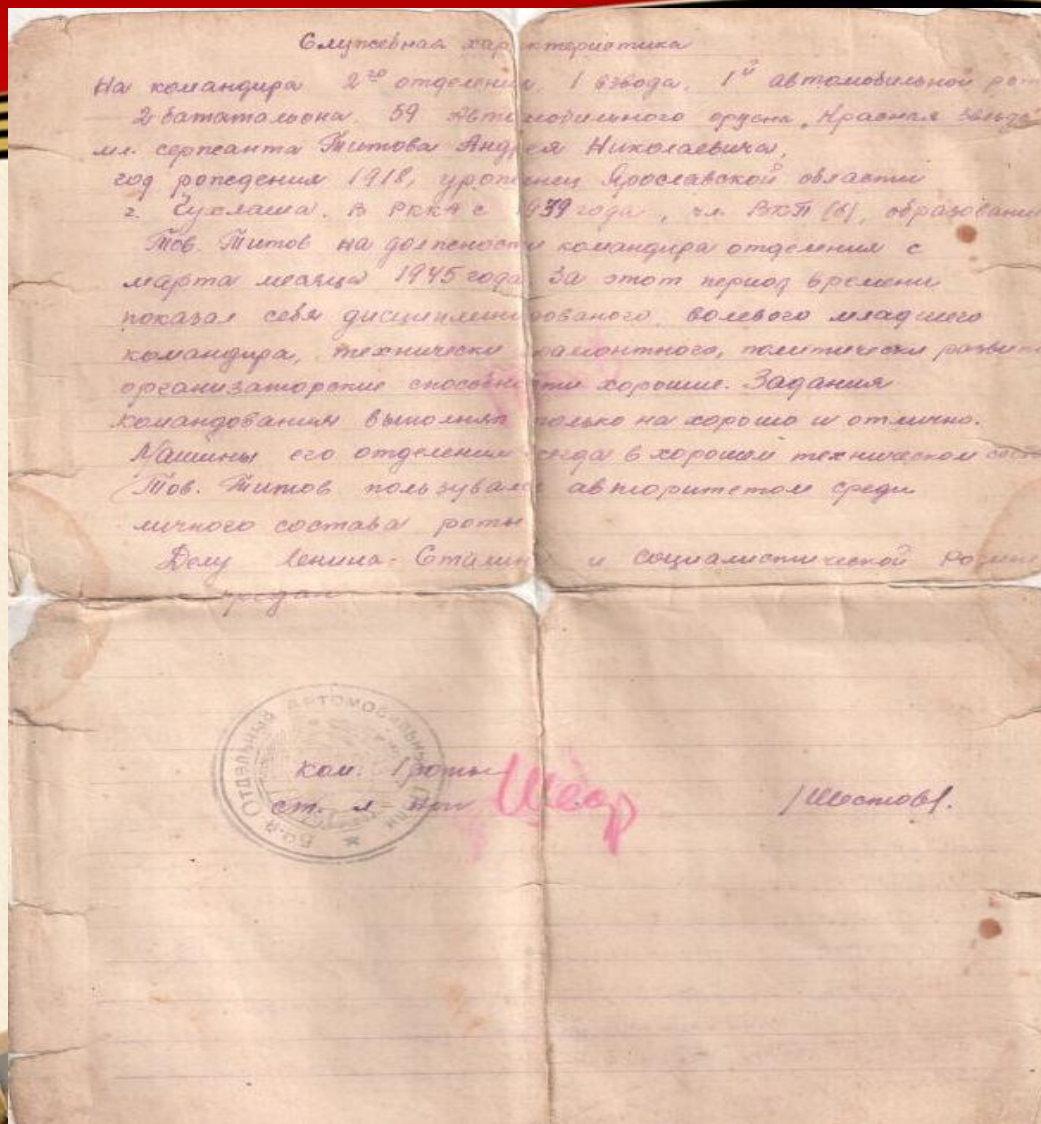 Служебная характеристика
На командира 2го отделения 1 взвода, 1й автомобильной рот
2 батальона 59 Автомобильного ордена „Красная Звезда"
мл. сержанта Титова Андрея Николаевича,
год рождения 1918, уроженец Ярославской области
г. В РККА с 1939 года, чл. ВКП(б), образовани
Тов. Титов на должности командира отделения с
марта месяца 1945 года За этот период времени
показал себя дисциплинированого, волевого младшего
командира, технически политически развит
организаторские способности хорошие. Задания
командования выполнял только на хорошо и отлично.
Машины его отделения всегда в хорошем техническом сост
Тов. Титов пользувался авторитетом среди
личного состава роты
Делу Ленина-Сталина и социалистической Родине
предан
ОТДЕЛЬНЫЙ АВТОМОБИЛЬНЫЙ
Ком. 1 роты
ст. л-нт
/Шестов/.